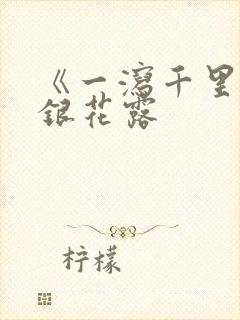 《一瀉千里
銀花露
柠檬